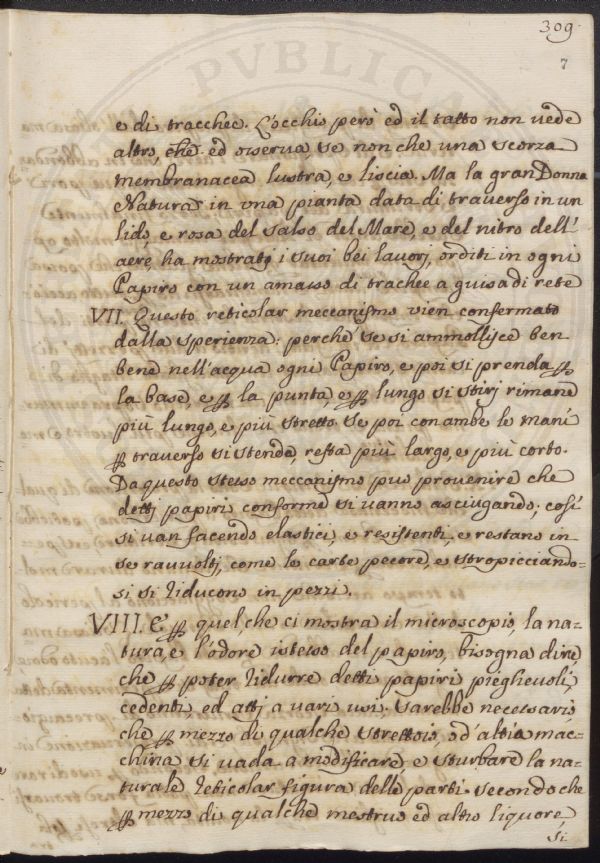 309
7
e di tracchee. L'occhio però ed il tatto non vede
altro, che ed osserva, se non che una scorza
membranacea lustra, e liscia. Ma la gran Donna
Natura in vna pianta data di traverso in un
lido, e rosa del salso del Mare, e del nitro dell'
aere, ha mostratj i suoi bei lavorj, orditi in ogni
Papiro con un amasso di trachee a guisa di rete
VII. Questo reticolar meccanismo vien confermato
dalla sperienza: perché se si ammollisce ben
bene nell'acqua ogni Papiro, e poi si prenda ꝑ
la base, e ꝑ la punta, e ꝑ lungo si stirj rimane
più lungo, e più stretto. Se poi con ambe le mani
ꝑ traverso si stenda, resta più largo, e più corto.
Da questo stesso meccanismo può provenire che
dettj papiri conforme si vanno asciugando; così
si van facendo elastici, e resistenti, e restano in
se ravvoltj, come le carte pecore, e stropicciando=
si si riducono in pezzi.
VIII. E ꝑ quel, che ci mostra il microscopio, la na=
tura, e l'odore istesso del papiro, bisogna dire,
che ꝑ poter ridurre detti papiri pieghevoli,
cedenti, ed attj a varj usi; sarebbe necessario
che ꝑ mezzo di qualche strettoio, o d'altra mac=
china si vada a modificare e sturbare la na=
turale reticolar figura delle parti. Secondo che
ꝑ mezzo di qualche mestruo ed altro liquore,
si
PVBLICA